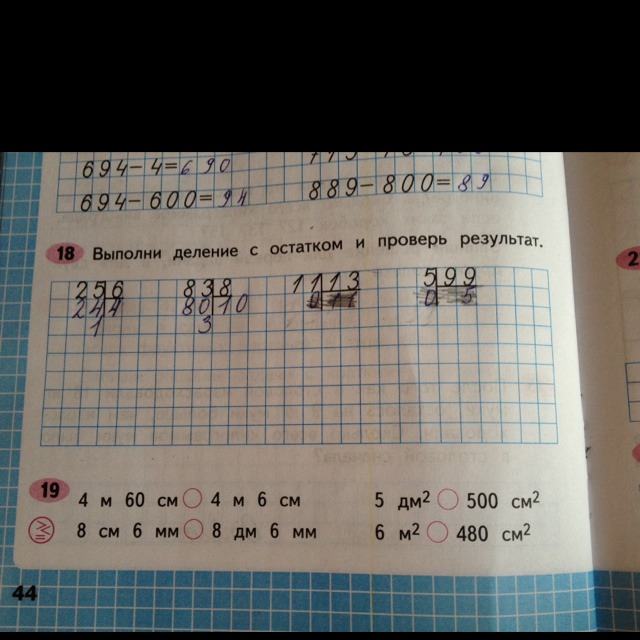 694-4=690
694-600=94
889-800=89
18 Выполни деление с остатком и проверь результат.
25 6 83 8 11 13 5 99
24 4 80 10 0
1 3
19 4 м 60 см 4 м 6 см 5 дм² 500 см²
8 см 6 мм 8 дм 6 мм 6 м² 480 см²
44
2